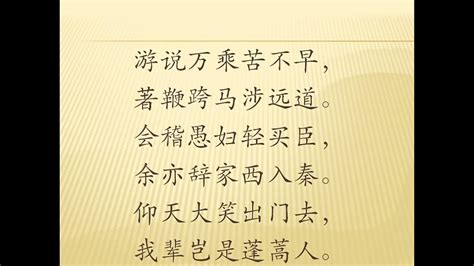 游说万乘苦不早，
著鞭跨马涉远道。
会稽愚妇轻买臣，
余亦辞家西入秦。
仰天大笑出门去，
我辈岂是蓬蒿人。